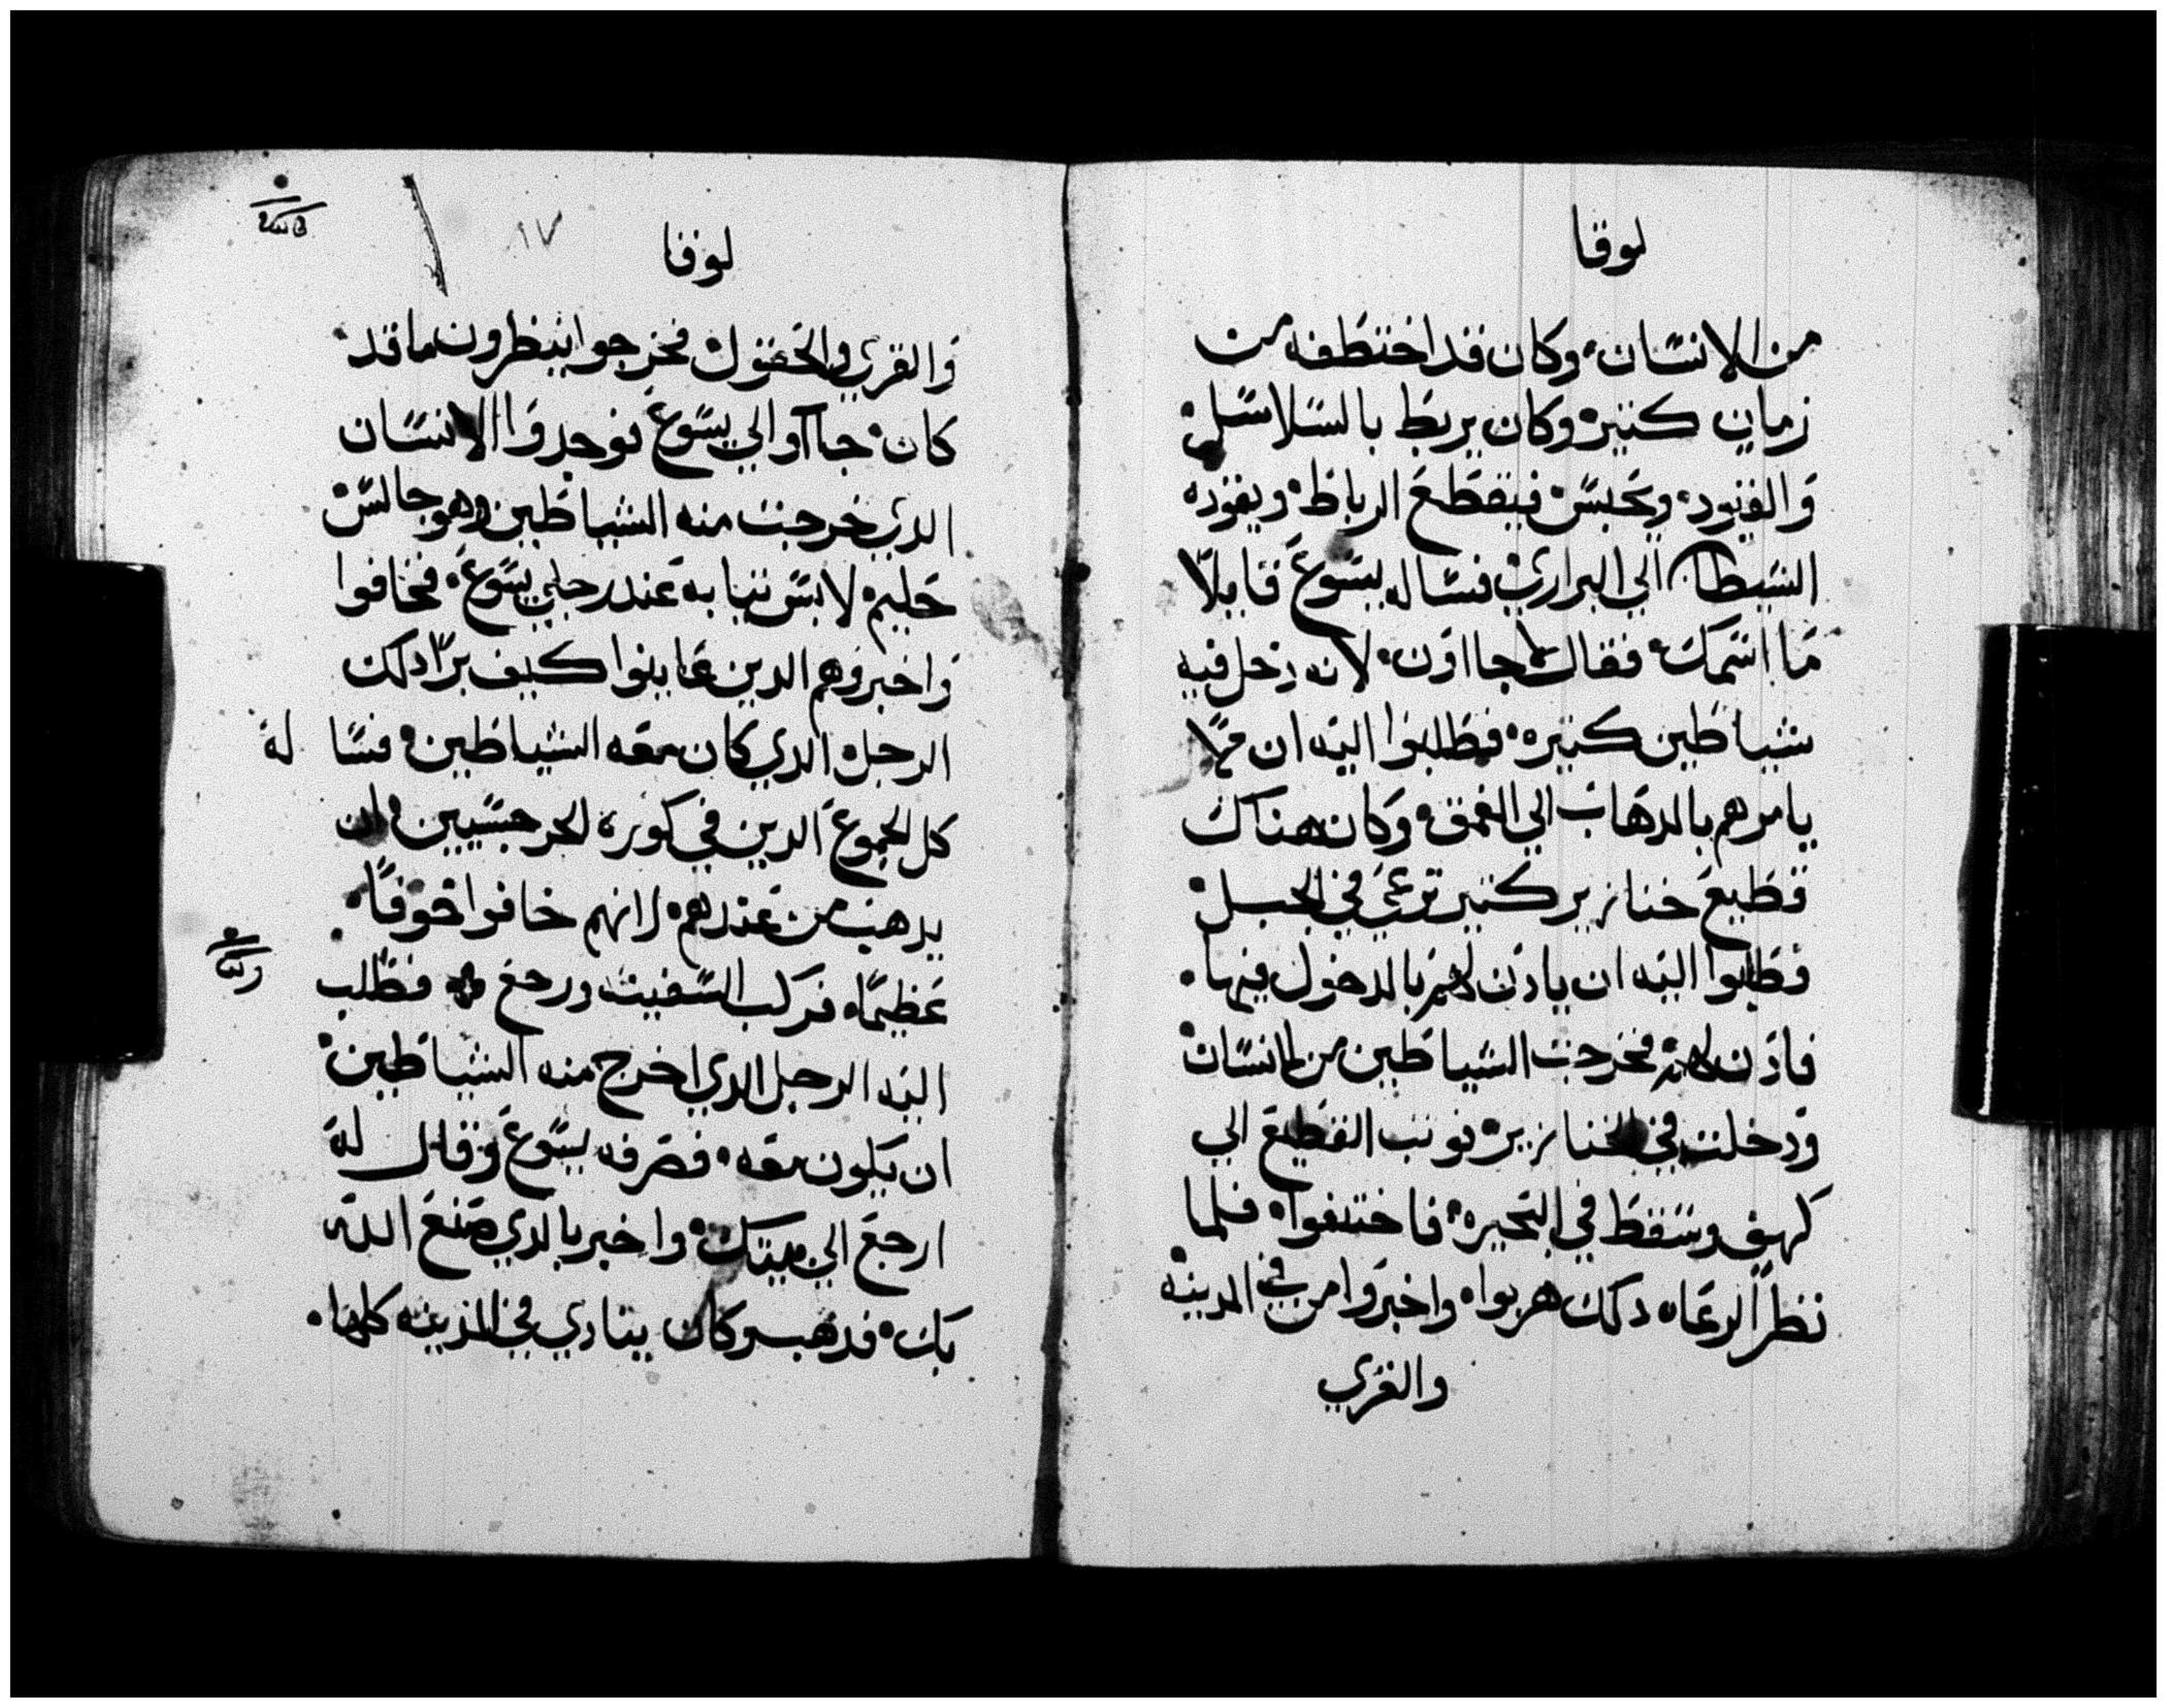 لوقا
من الانسان وكان قد اختطفه من
زمان كثير وكان يربط بالسلاسل
والقيود ويحبس فيقطع الرباط ويقوده
الشيطان الي البراري فساله يسوع قايلاً
ما اسمك فقال جااون لانه دخل فيه
شياطين كثيره فطلبوا اليه ان لا
يامرهم بالدهاب الي العمق وكان هناك
قطيع خنازير كثير ترعي في الجبل
فطلبوا اليه ان يادن لهم بالدخول فيها
فادن لهم فخرجت الشياطين من الانسان
ودخلت في الخنازير فوثب القطيع الي
كهف وسقط في البحيره فاختنقوا فلما
نظر الرعاه دلك هربوا واخبروا من في المدينه
والقري
لوقا
١٧
والقري والحقول فخرجوا ينظرون ما قد
كان جاآو الي يسوع فوجدوا الانسان
الدي خرجت منه الشياطين وهو جالس
حليم لابس ثيابه عند رجلي يسوع فخافوا
واخبروهم الدين عاينوا كيف برا دلك
الرجل الدي كان معه الشياطين فسا له
كل الجموع الدين في كورة الجرجسيين ان
يدهب من عندهم لانهم خافوا خوفاً
عظيماً فركب السفينة ورجع فطلب
اليه الرجل الدي اخرج منه الشياطين
ان يكون معه فصرفه يسوع وقال له
ارجع الي بيتك واخبر بالدي صنع الله
بك فدهب وكان ينادي في المدينه كلها